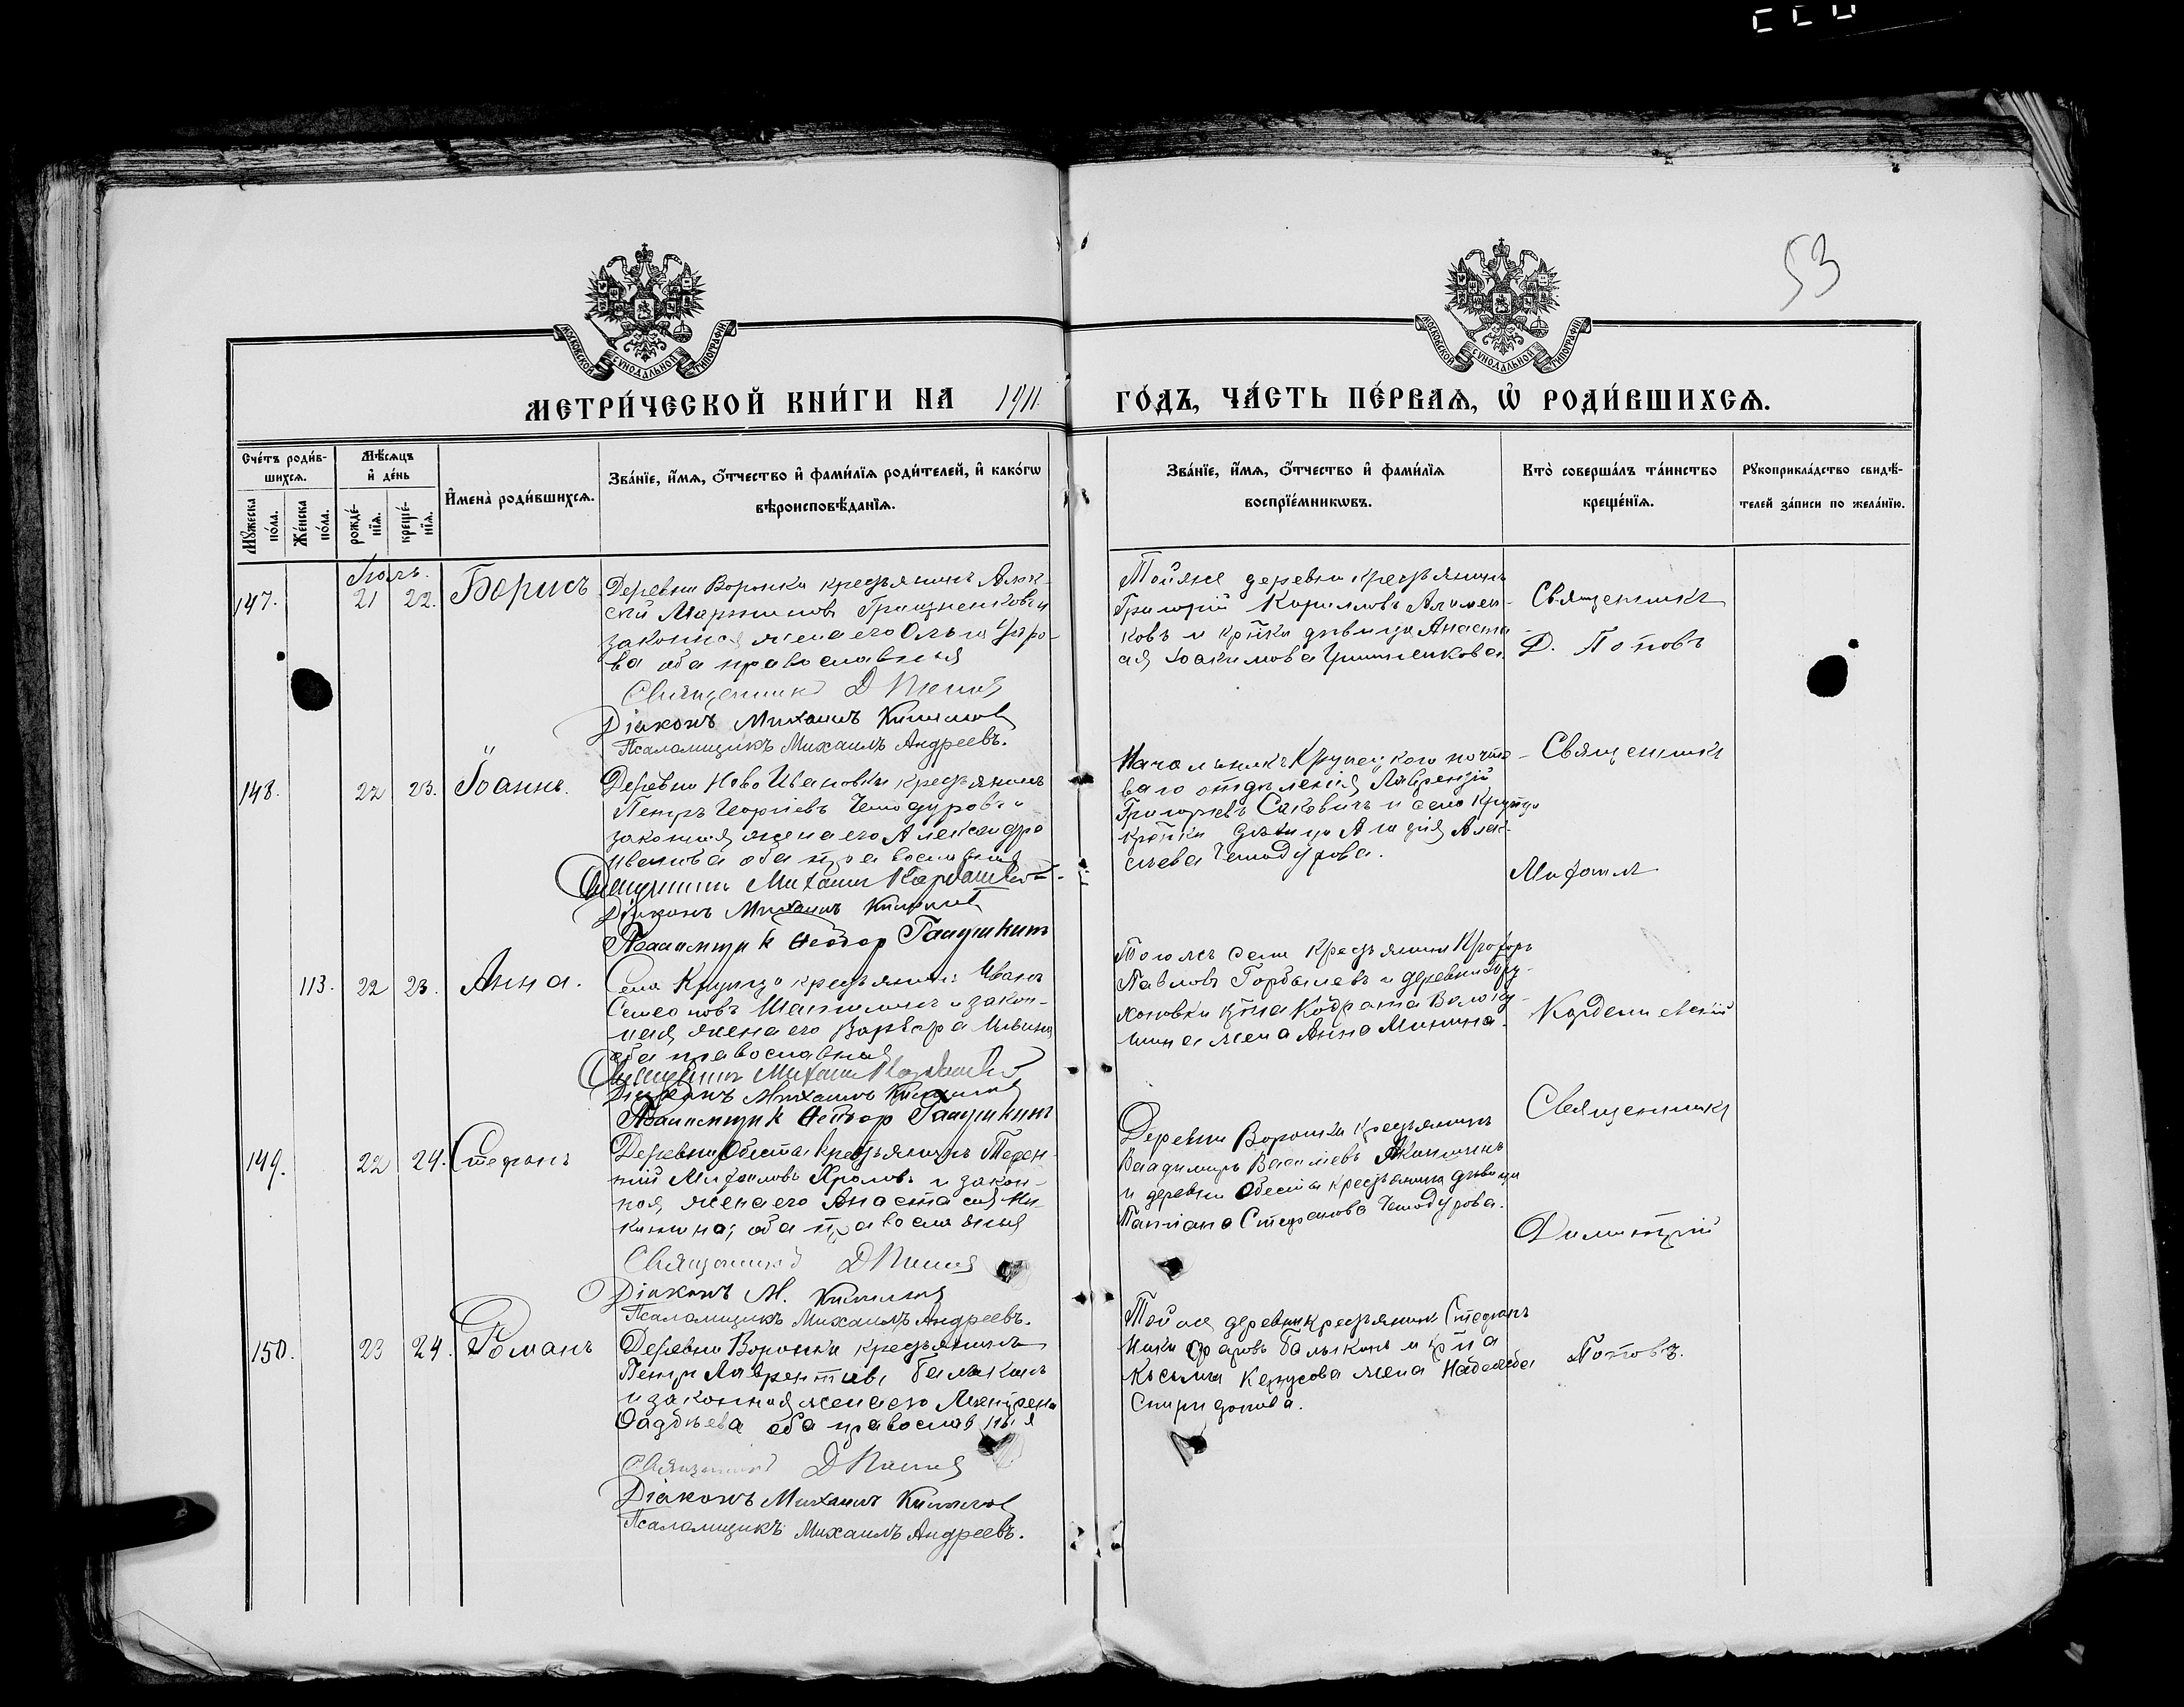 53
МОСКОВСКОЙ СѴНОДАЛЬНОЙ ТИПОГРАФІИ
МОСКОВСКОЙ СѴНОДАЛЬНОЙ ТИПОГРАФІИ
МЕТРИ́ЧЕСКОЙ КНИ́ГИ НА 1911 ГО́ДЪ, ЧА́СТЬ ПЕ́РВАѦ, Ѡ҆ РОДИ́ВШИХСѦ.
Сче́тъ роди́в-
шихсѧ.
Мꙋ́жеска по́ла.
Же́нска по́ла.
Мѣ́сѧцъ
и҆ де́нь
рожде́-нїѧ.
креще́-нїѧ.
И҆мена̀ роди́вшихсѧ.
Зва́нїе, и҆́мѧ, ѻ҆́тчество и҆ фами́лїѧ роди́телей, и҆ како́гѡ
вѣроисповѣ́данїѧ.
Зва́нїе, и҆́мѧ, ѻ҆́тчество и҆ фами́лїѧ
воспрїе́мникѡвъ.
Кто̀ соверша́лъ та́инство
креще́нїѧ.
Рꙋкоприкла́дство свидѣ́-
телей за́писи по жела́нїю.
Іюль.
147. 21 22. Борисъ
Деревни Воронка крестьянинъ Алек-
сѣй Мартиновъ Грищенковъ и
законная жена его Ольга
ва оба православныя
Священникъ Д Поповъ
Діаконъ Михаилъ
Псаломщикъ Михаилъ Андреевъ.
Тойже деревни крестьянинъ
Григорій Кириловъ
ковъ и кр-нка дѣвица Анаста
ая Іоакимова Грищенкова.
Священникъ
Д. Поповъ
148. 22 23. Іоаннъ.
Деревни Ново Ивановки крестьянинъ
Петръ Георгіевъ Чемодуровъ и
законная жена его Александра
Иванова оба православныя
Священникъ Михаилъ
Діаконъ Михаилъ
Псаломщикъ Ѳеодоръ Галушкинъ
Начальникъ Крупецкого почто-
ваго отдѣленія Лаврентій
Григорьевъ Саковичъ и села Крупца
кр-нка дѣвица Алек-
сѣева Чемодурова.
Священникъ
Михаилъ
113. 22 23. Анна.
Села Крупца крестьянинъ Иванъ
Семеновъ и закон-
ная жена его Варвара
оба православныя
Священникъ Михаилъ
Діаконъ Михаилъ
Псаломщикъ Ѳеодоръ Галушкинъ
Тогожъ села крестьянинъ
Павловъ Горбылевъ и деревни
хоновки кр-на
жена Анна Минина.
149. 22 24. Стефанъ
Деревни Обеста крестьянинъ Терен-
тій Михаиловъ Хроловъ и закон-
ная жена его Анастасия Ни-
китина; оба православныя
Священникъ Д Поповъ
Діаконъ М.
Псаломщикъ Михаилъ Андреевъ.
Деревни Воронки крестьянинъ
Владимиръ Васильевъ
и деревни Обесты крестьянина дѣвица
Татіана Стефанова Чемодурова.
Священникъ
Димитрій
150. 23 24. Романъ
Деревни Воронки крестьянинъ
Петръ Лаврентьевъ Балыкинъ
и законная жена его
Ѳаддѣева оба православныя
Священникъ Д Поповъ
Діаконъ Михаилъ
Псаломщикъ Михаилъ Андреевъ.
Тойже деревни крестьянинъ Стефанъ
Никифоровъ Балыкинъ и кр-на
Косьмы жена Надежда
Спиридонова.
Поповъ.